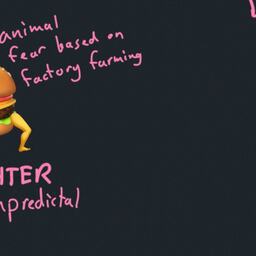 animal
fear based on
factory farming
HTER
npredictal